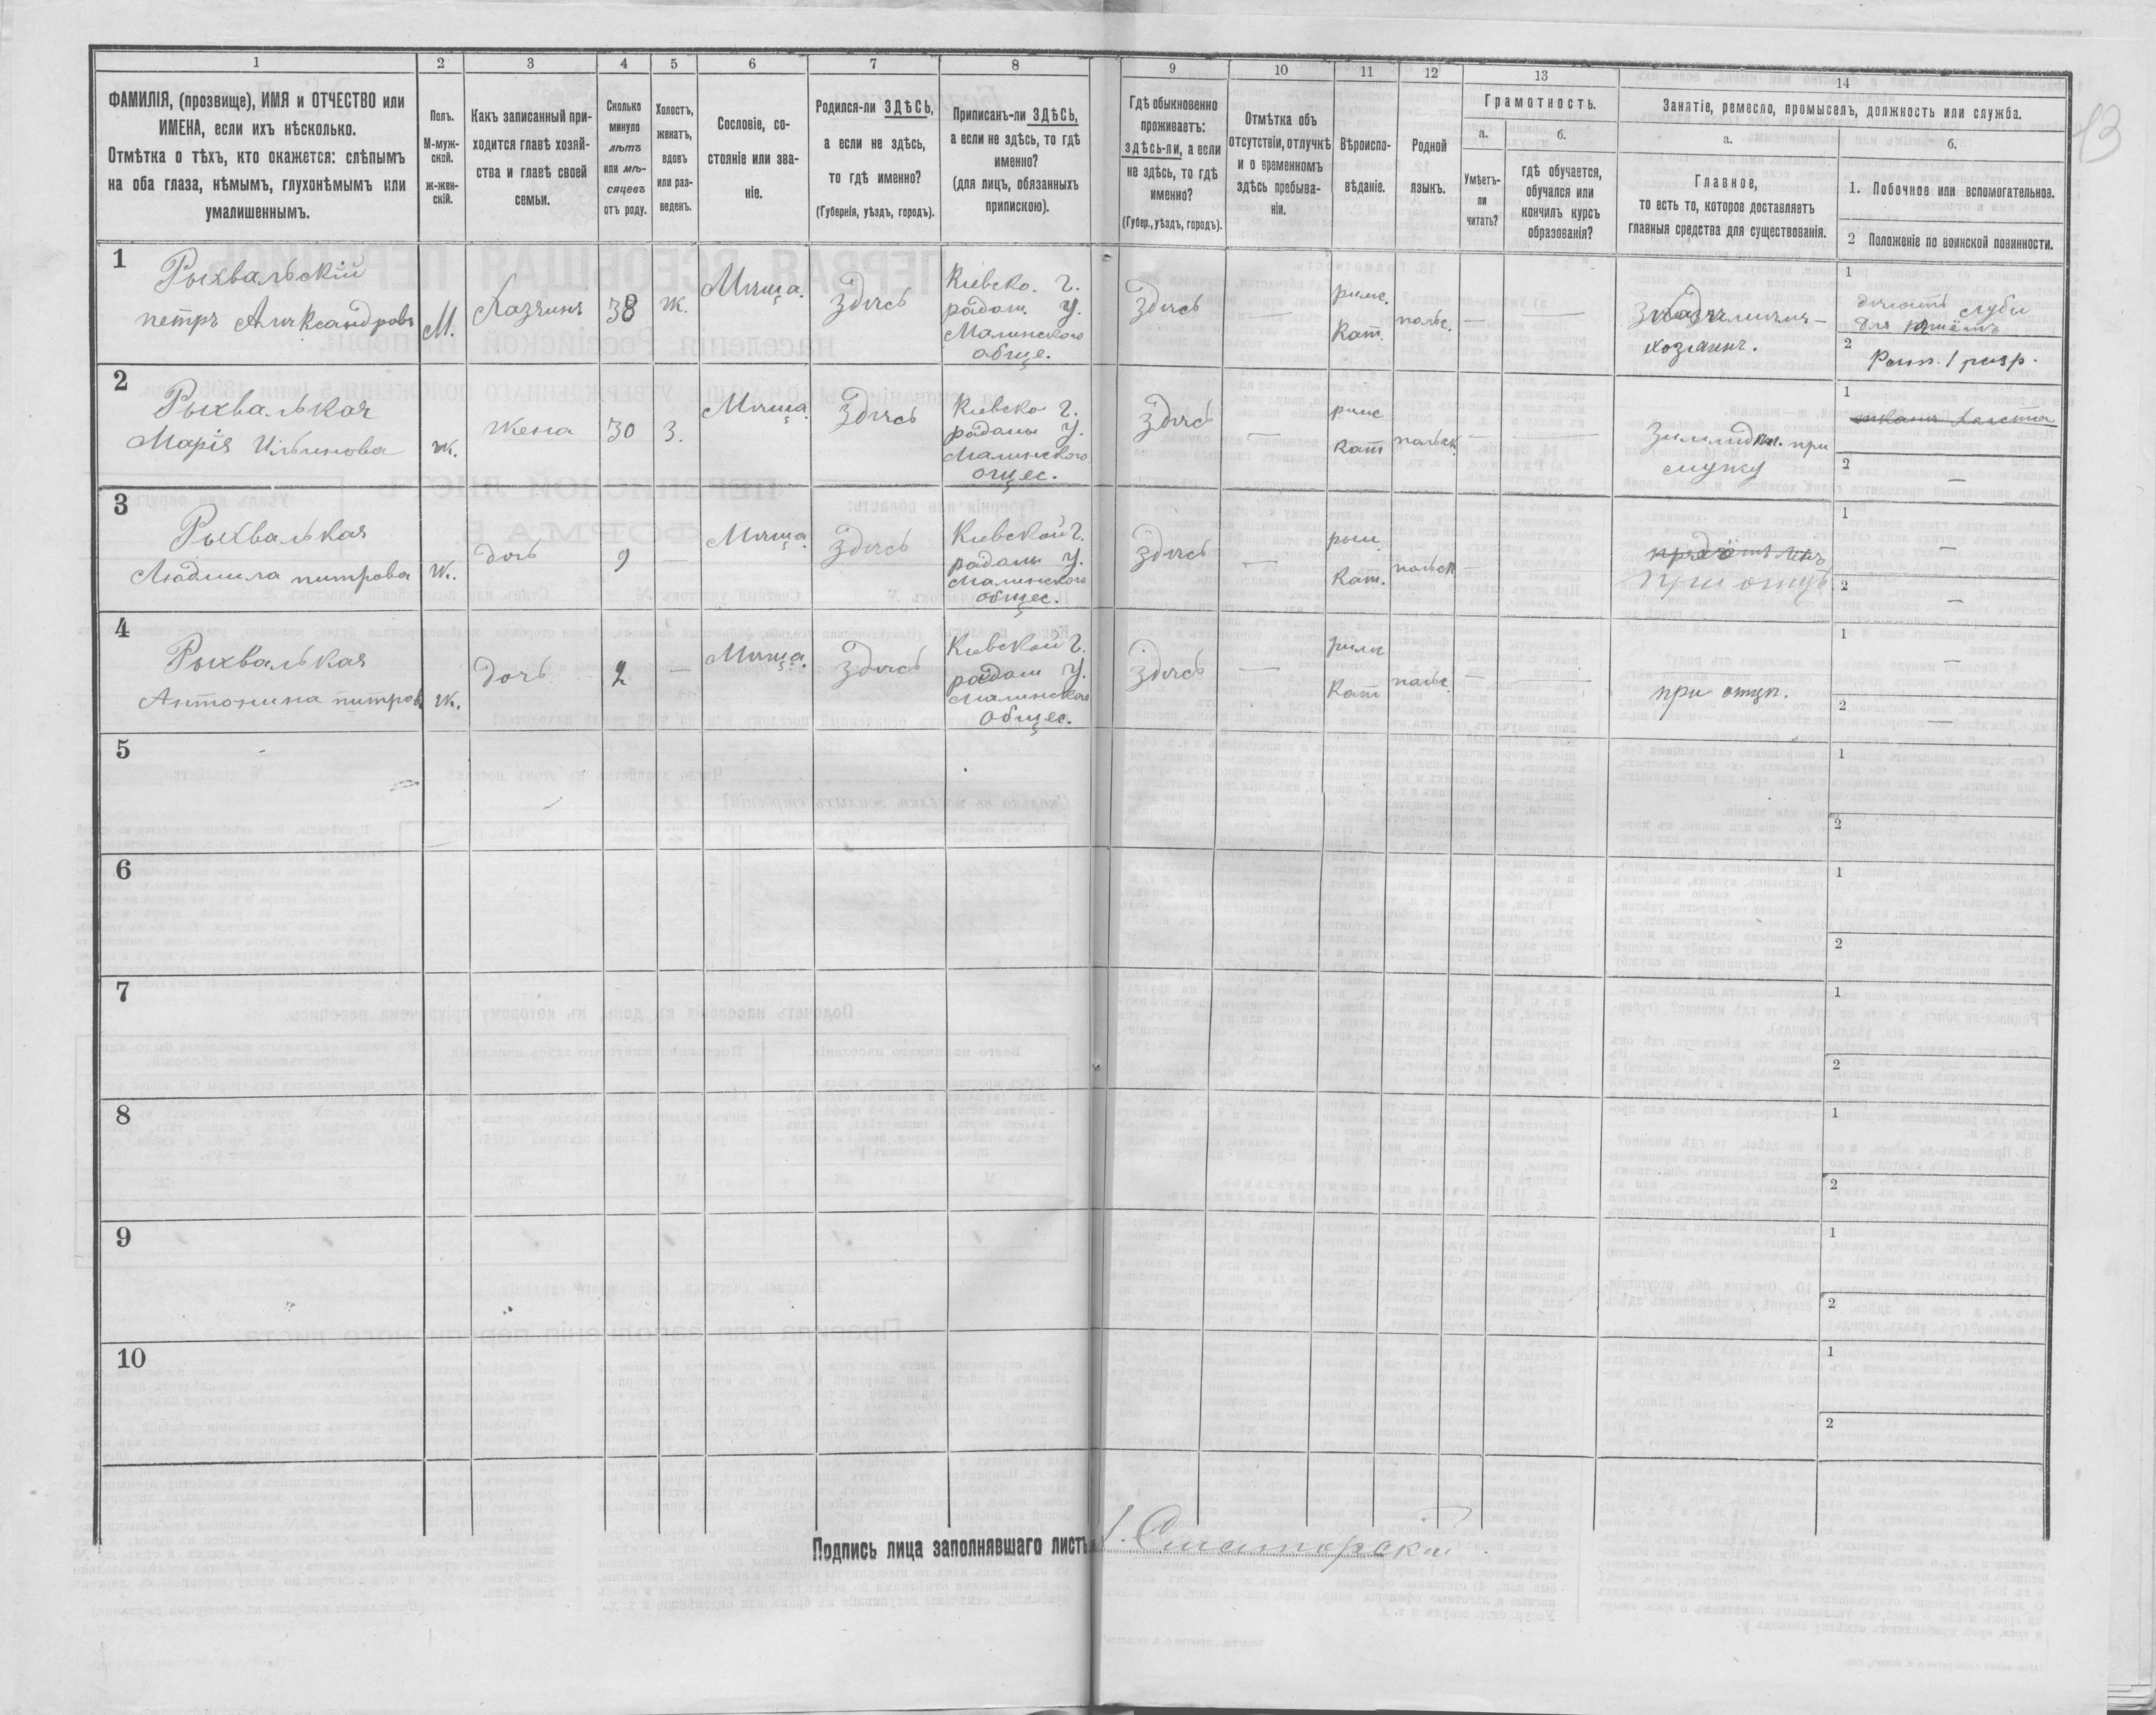 1 2 3 4 5 6 7 8 9 10 11 12 13 14
ФАМИЛІЯ, (прозвище), ИМЯ и ОТЧЕСТВО или
ИМЕНА, если ихъ нѣсколько.
Отмѣтка о тѣхъ, кто окажется: слѣпымъ
на оба глаза, нѣмымъ, глухонѣмымъ или
умалишеннымъ.
Полъ.
М-муж-
ской.
ж-жен-
скій.
Какъ записанный при-
ходится главѣ хозяй-
ства и главѣ своей
семьи.
Сколько
минуло
лѣтъ
или мѣ-
сяцевъ
отъ роду.
Холостъ,
женатъ,
вдовъ
или раз-
веденъ.
Сословіе, со-
стояніе или зва-
ніе.
Родился-ли ЗДѢСЬ,
а если не здѣсь,
то гдѣ именно?
(Губернія, уѣздъ, городъ).
Приписанъ-ли ЗДѢСЬ,
а если не здѣсь, то гдѣ
именно?
(для лицъ, обязанныхъ
припискою).
Гдѣ обыкновенно
проживаетъ:
здѣсь-ли, а если
не здѣсь, то гдѣ
именно?
(Губер., уѣздъ, городъ).
Отмѣтка объ
отсутствіи, отлучкѣ
и о временномъ
здѣсь пребыва-
ніи.
Вѣроиспо-
вѣданіе.
Родной
языкъ.
Грамотность.
а.
Умѣетъ-
ли
читать?
б.
гдѣ обучается,
обучался или
кончилъ курсъ
образованія?
Занятіе, ремесло, промыселъ, должность или служба.
а.
Главное,
то есть то, которое доставляетъ
главныя средства для существованія.
б.
1. Побочное или вспомогательное.
2 Положеніе по воинской повинности.
13
1
Рыхвальскій
петръ Александровъ
М.
38
Ж.
Мѣща.
Здѣсь
Кіевско. г.
радом. у.
Малинского
обще.
Здѣсь
—
римс.
Кат.
польс.
—
—
хозяинъ.
1
2
2
Рыхвальская
Марія Ильинова
Ж.
жена
30
З.
Мѣща.
Здѣсь
Кіевско г.
радомы у.
Малинского
Здѣсь
—
римс
Кат
польск.
—
—
при
мужу
1
2
—
3
Рыхвальская
Людмила питрова
Ж.
дочь
9
—
Мѣща.
Здѣсь
Кіевской г.
радомы у.
Малинского
общес.
Здѣсь
—
рим.
Кат.
польск
—
при отцѣ
1
—
2
—
4
Рыхвальская
Антонина питров.
Ж.
Дочь
2
—
Мѣща.
Здѣсь
Кіевской г.
радом у.
Малинского
Общес.
Здѣсь
—
римс
Кат
польс.
—
—
при отцѣ.
1
—
2
—
5
1
2
6
1
2
7
1
2
8
1
2
9
1
2
10
1
2
Подпись лица заполнявшаго листъ